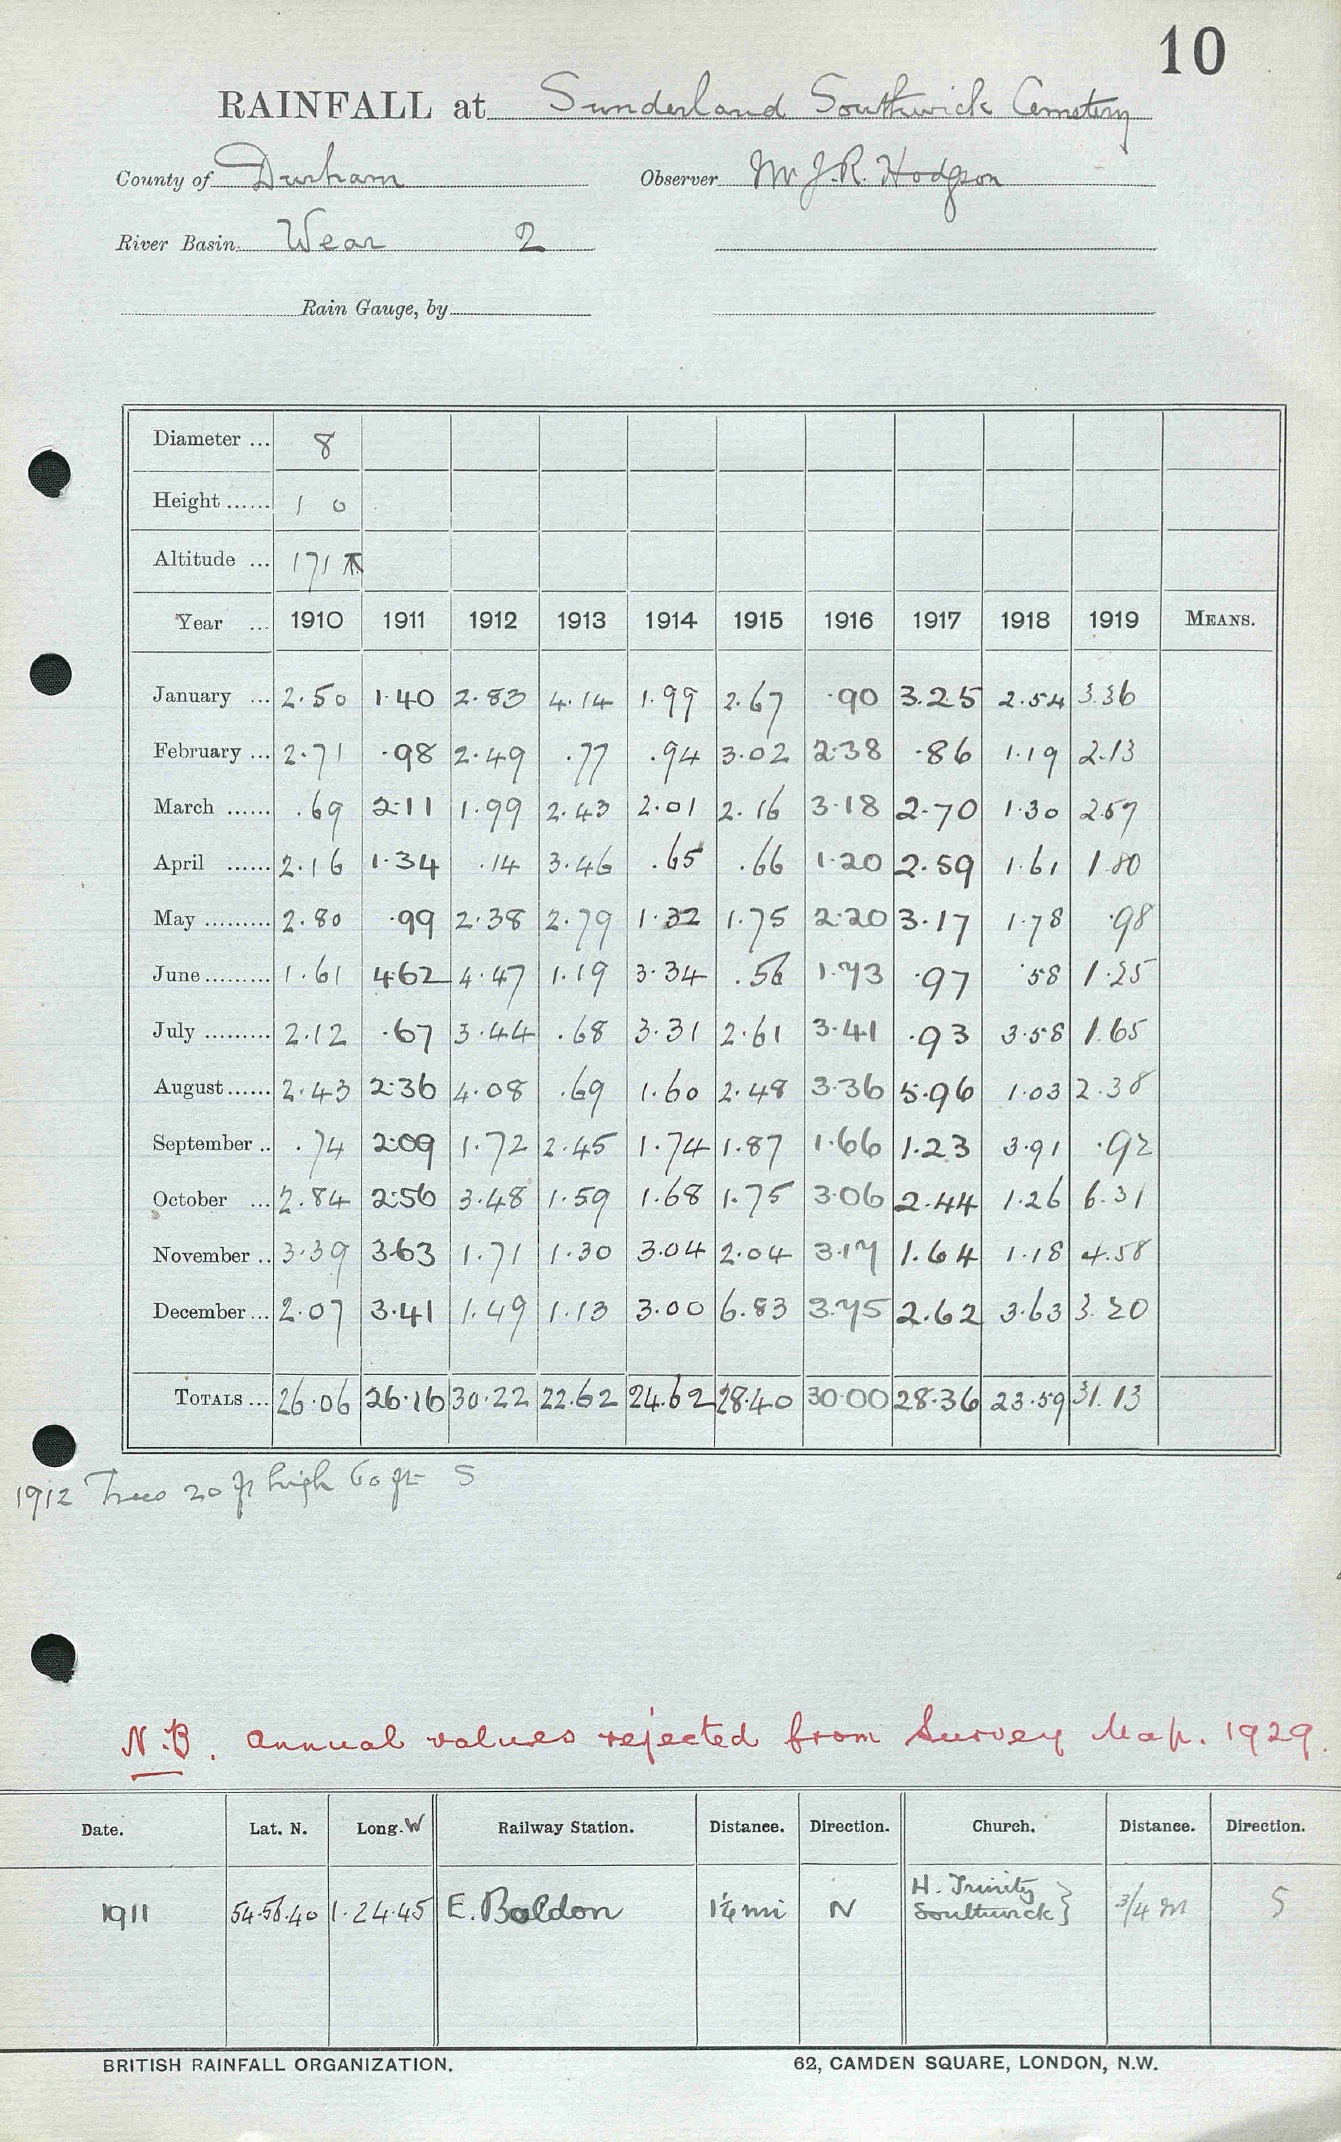 10
RAINFALL at Sunderland Southwick Cemetery
County of Durham Observer Mr J.R. Hodgson
River Basin Wear 2
Rain Gauge, by
Diameter ... 8
Height ...... 1 0
Altitude ... 171
Year ... 1910 1911 1912 1913 1914 1915 1916 1917 1918 1919 MEANS.
January ... 2.50 1.40 2.83 4.14 1.99 2.67 .90 3.25 2.54 3.36
February ... 2.71 .98 2.49 .77 .94 3.02 2.38 .86 1.19 2.13
March ...... .69 2.11 1.99 2.43 2.01 2.16 3.18 2.70 1.30 2.57
April ...... 2.16 1.34 .14 3.46 .65 .66 1.20 2.59 1.61 1.80
May ......... 2.80 .99 2.38 2.79 1.32 1.75 2.20 3.17 1.78 .98
June ......... 1.61 4.62 4.47 1.19 3.34 .56 1.73 .97 .58 1.25
July ......... 2.12 .67 3.44 .68 3.31 2.61 3.41 .93 3.58 1.65
August ...... 2.43 2.36 4.08 .69 1.60 2.48 3.36 5.96 1.03 2.38
September .. .74 2.09 1.72 2.45 1.74 1.87 1.66 1.23 3.91 .92
October ... 2.84 2.56 3.48 1.59 1.68 1.75 3.06 2.44 1.26 6.31
November .. 3.39 3.63 1.71 1.30 3.04 2.04 3.17 1.64 1.18 4.58
December ... 2.07 3.41 1.49 1.13 3.00 6.83 3.75 2.62 3.63 3.20
TOTALS ... 26.06 26.16 30.22 22.62 24.62 28.40 30.00 28.36 23.59 31.13
1912 Trees 20 ft high 60 ft S
N.B. Annual values rejected from Survey Map. 1929.
Date. Lat. N. Long. W Railway Station. Distance. Direction. Church. Distance. Direction.
H. Trinity
1911 54.56.40 1.24.45 E. Boldon 1¼ mi N Southwick} 3/4 m S
BRITISH RAINFALL ORGANIZATION. 62, CAMDEN SQUARE, LONDON, N.W.